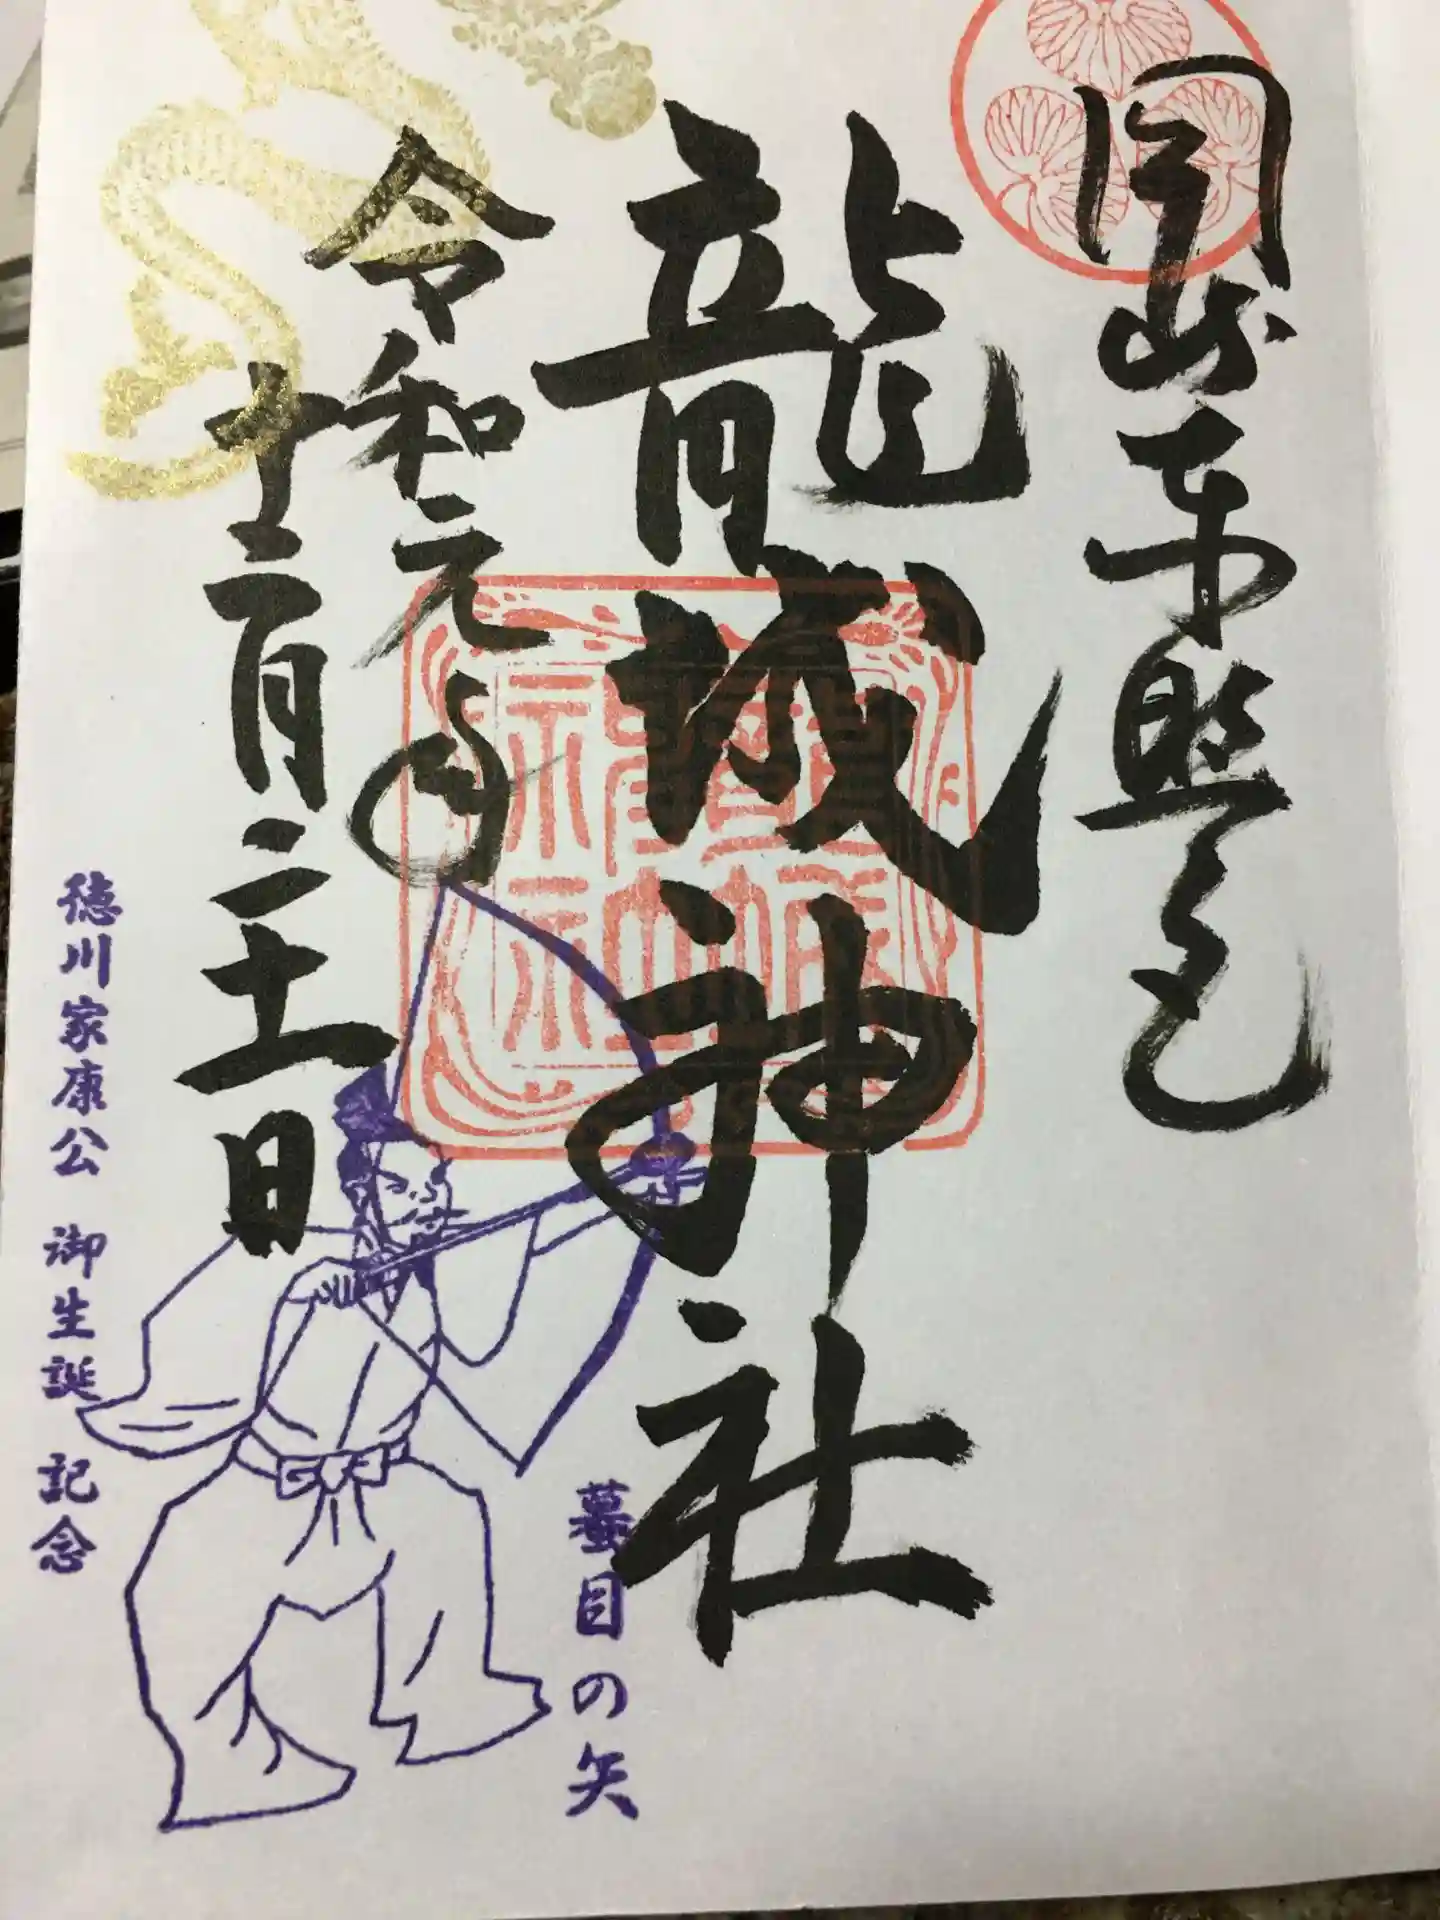 岡崎東照宮
龍城神社
令和元年
十二月二十一日
蟇目の矢
徳川家康公 御生誕 記念